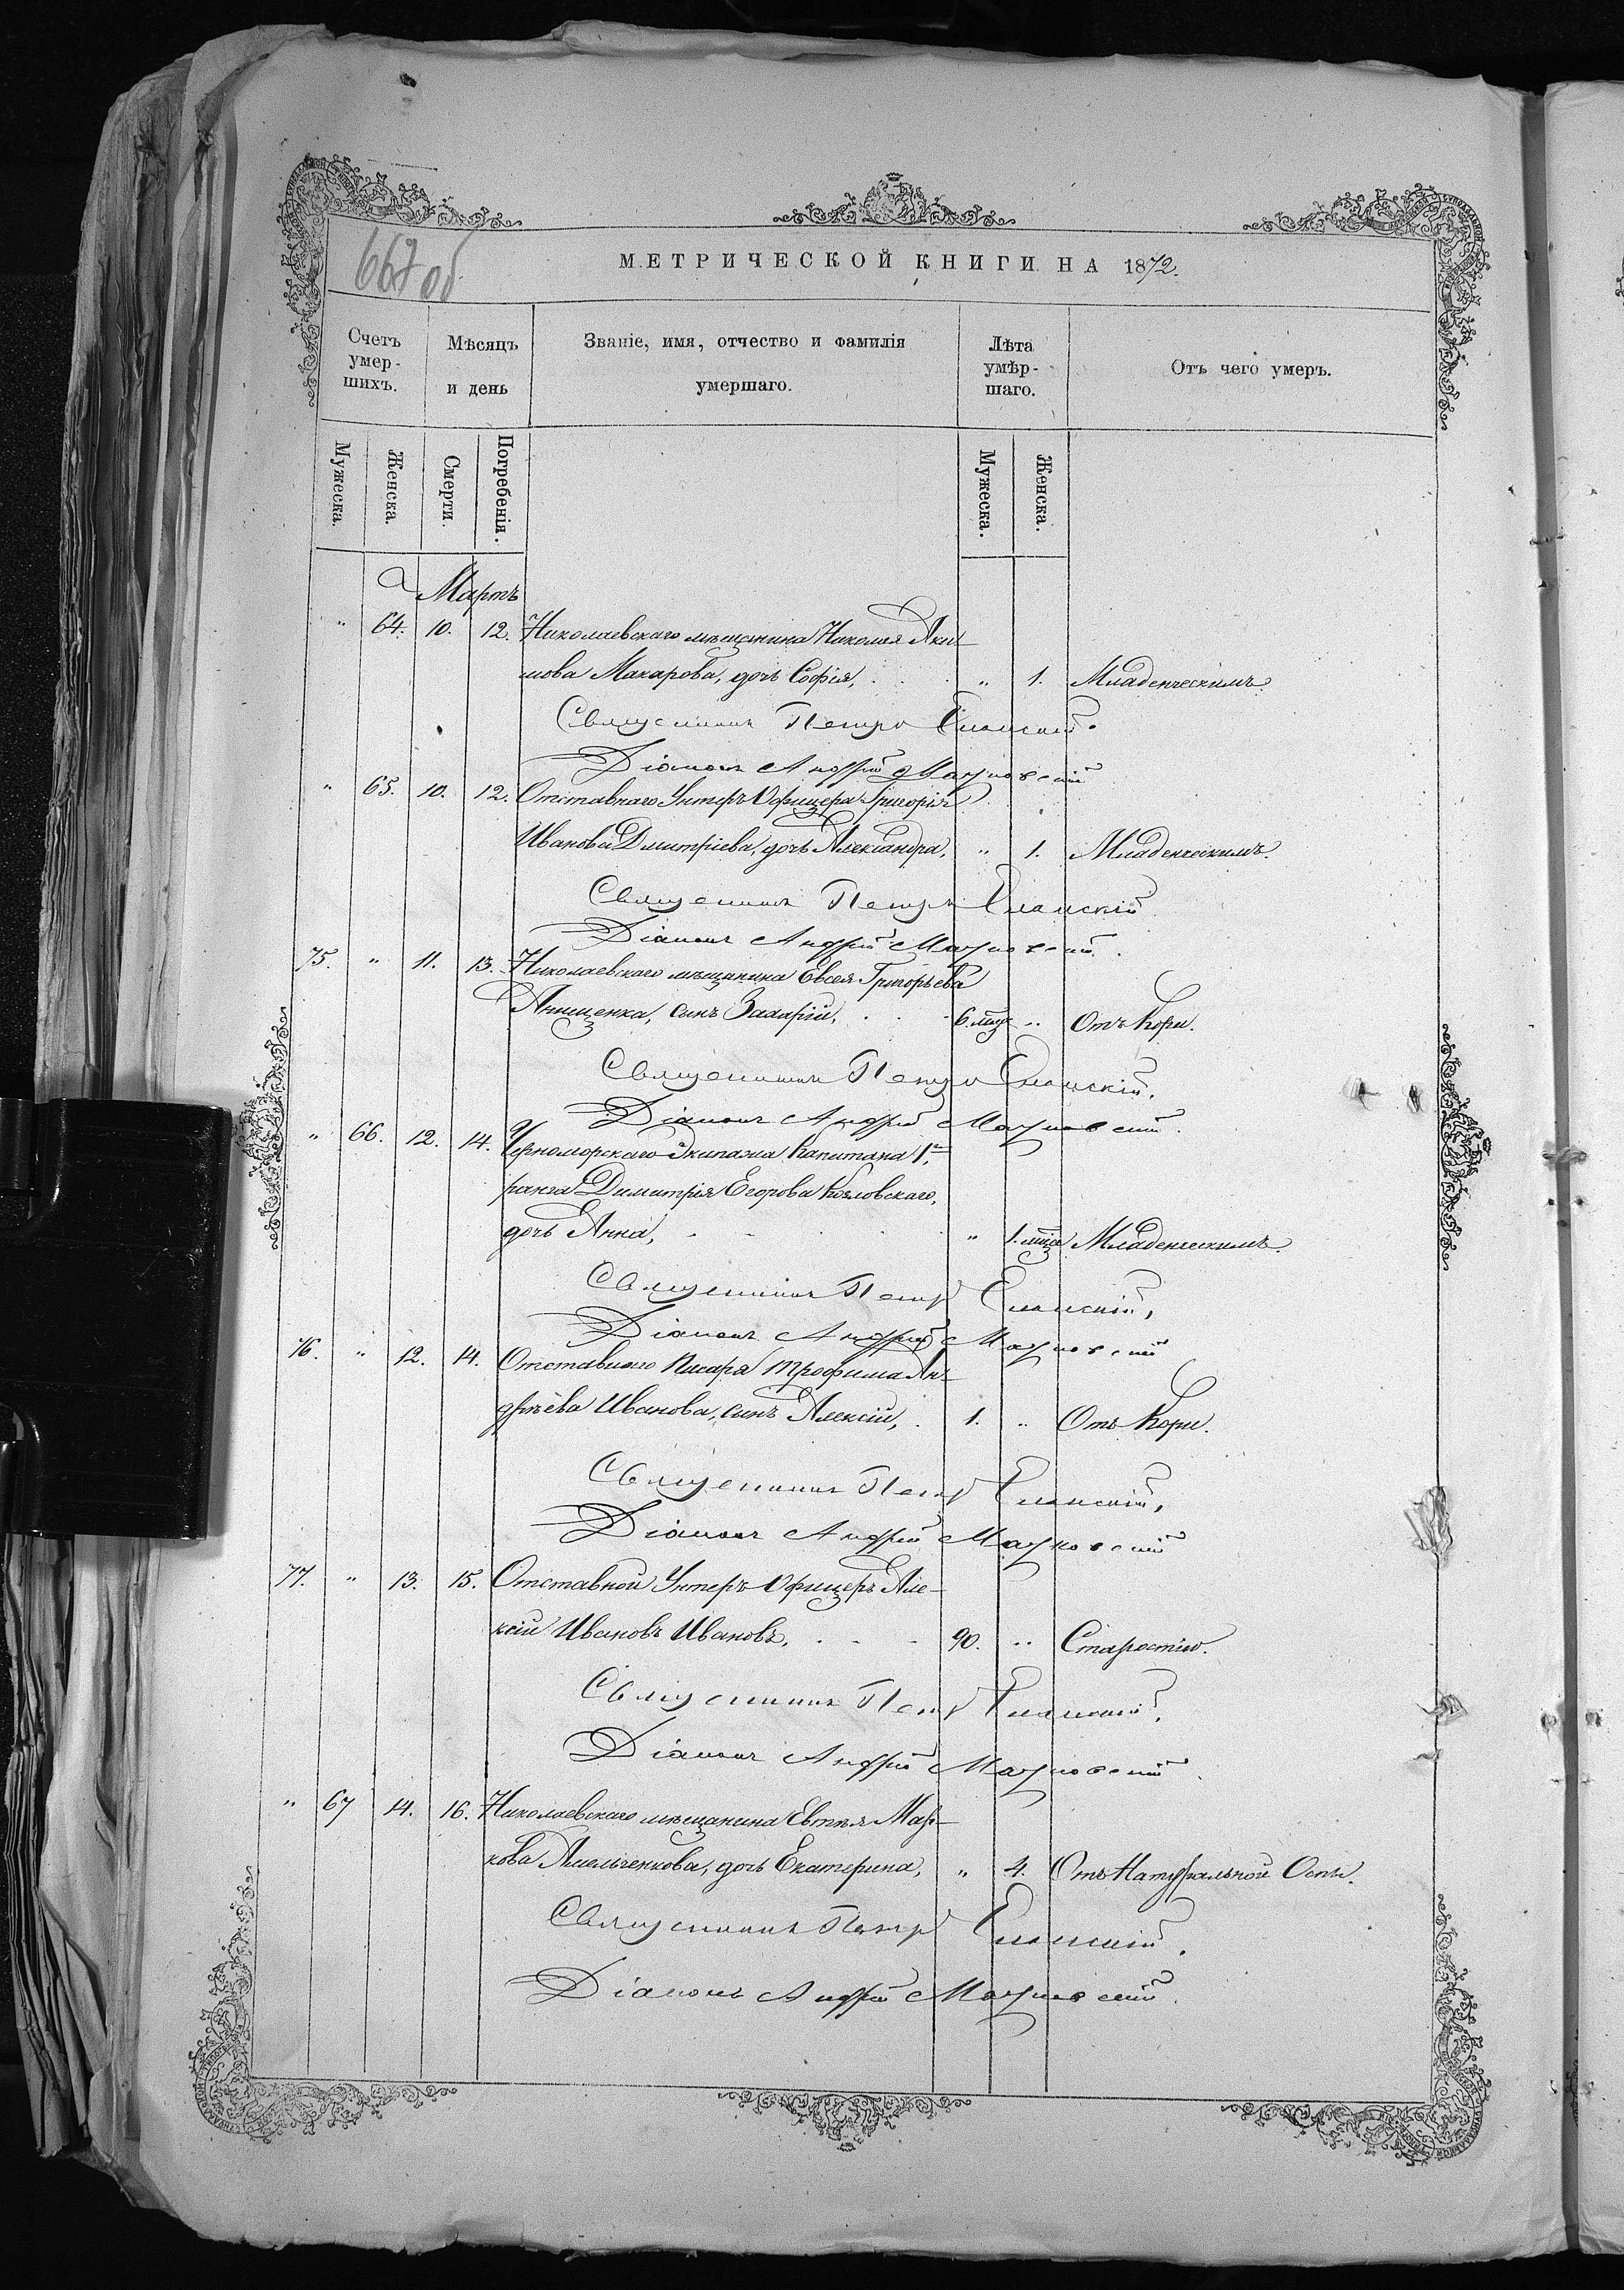 667 об
МЕТРИЧЕСКОЙ КНИГИ НА 1872.
Счетъ умер- шихъ.
Мѣсяцъ и день
Званіе, имя, отчество и фамилія умершаго.
Лѣта умѣр- шаго.
Отъ чего умеръ.
Мужеска.
Женска.
Смерти.
Погребенія.
Мужеска.
Женска.
Мартъ
" 64. 10. 12. Николаевскаго мѣщанина Николая Аки-
мова Макарова, дочь Софія, . . . " 1. Младенческимъ.
Священникъ Петръ Еланскій.
Діаконъ Андрей
" 65. 10. 12. Отставнаго Унтеръ Офицера Григорія
Иванова Димитріева, дочь Александра, " 1. Младенческимъ.
Священникъ Петръ Еланскій
Діаконъ Андрей
75. " 11. 13. Николаевскаго мѣщанина Евсея Григорьева
Анищенка, сынъ Захарій, . . . 6. мцв " Отъ Кори.
Священникъ Петръ Еланскій.
Діаконъ Андрей
" 66. 12. 14. Черноморскаго Экипажа Капитана 1го
ранга Димитрія Егорова Козловскаго,
дочь Анна, . . . . " 1. мца Младенческимъ.
Священникъ Петръ Еланскій,
Діаконъ Андрей
76. " 12. 14. Отставнаго Писаря Трофима Ан-
дреева Иванова, сынъ Алексій, . 1. " Отъ Кори.
Священникъ Петръ Еланскій,
Діаконъ Андрей
77. " 13. 15. Отставной Унтеръ-Офицеръ Але-
ксій Ивановъ Ивановъ, . . . 90. " Старостію.
Священникъ Петръ Еланскій,
Діаконъ Андрей
" 67 14. 16. Николаевскаго мѣщанина Евтея Мар-
кова Амельченкова, дочь Екатерина, " 4. Отъ Натуральной Оспы.
Священникъ Петръ Еланскій.
Діаконъ Андрей